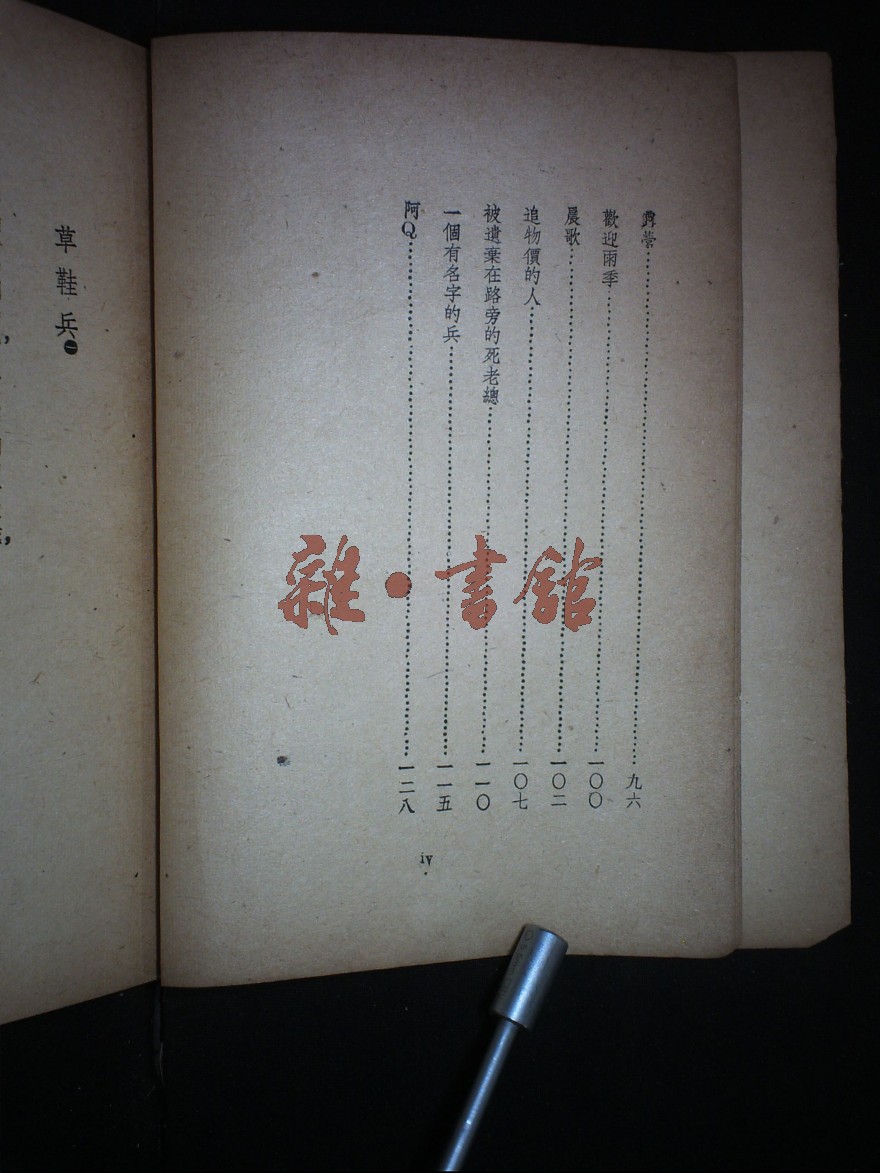 露營……九六
歡迎雨季……一〇〇
晨歌……一〇二
追物價的人……一〇七
被遺棄在路旁的死老總……一一〇
一個有名字的兵……一一五
阿Q……一二八
iv
草鞋兵㊀
雜·書館